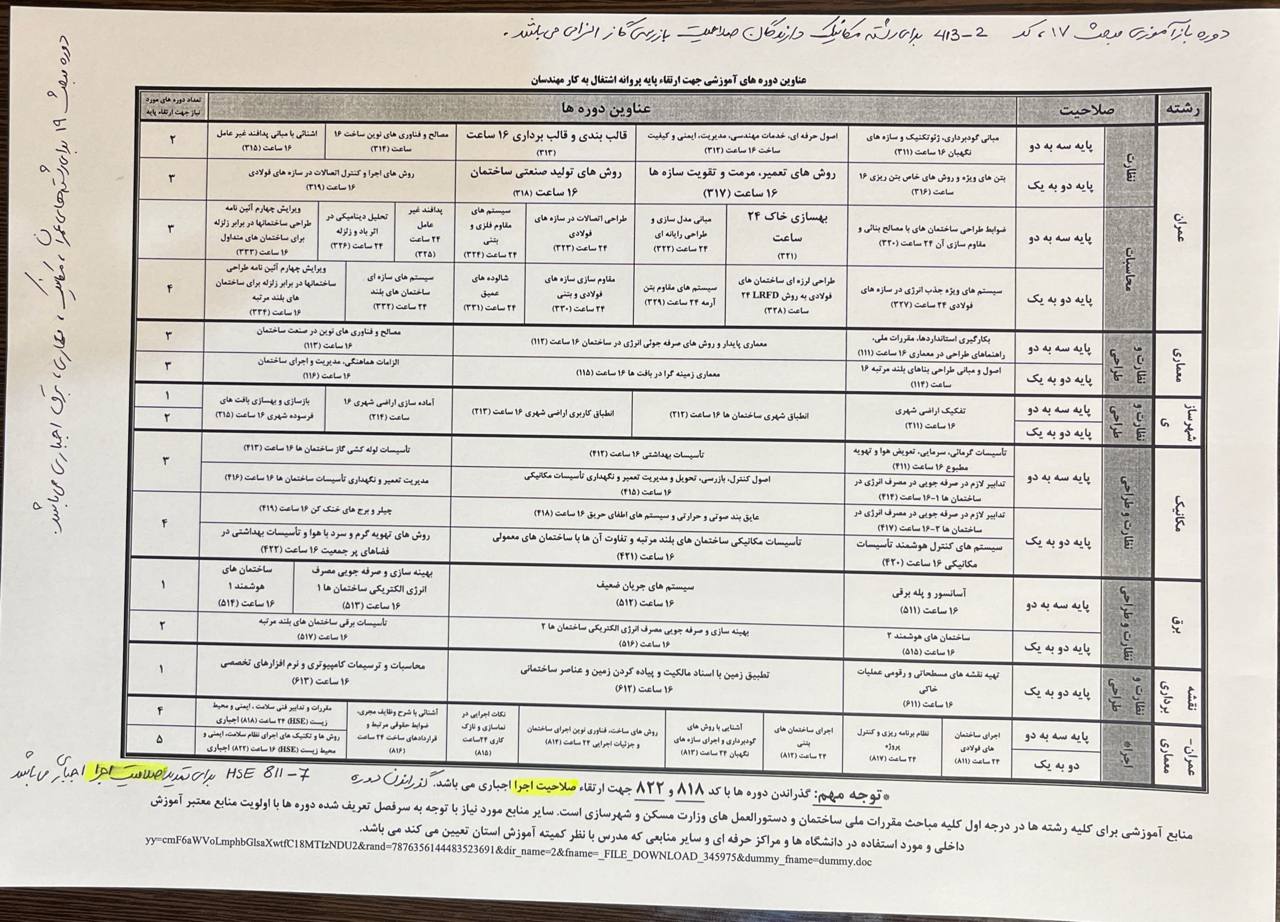 دوره بازآموزی مبحث ۱۷، کد 413-2 برای رشته مکانیک دارندگان صلاحیت بازرسی گاز الزامی می‌باشد.
دوره مبحث ۱۹ برای رشته‌های عمران، مکانیک، معماری، برق اجباری می‌باشد.
عناوین دوره های آموزشی جهت ارتقاء پایه پروانه اشتغال به کار مهندسان
رشته
صلاحیت
عناوین دوره ها
تعداد دوره های مورد نیاز جهت ارتقاء پایه
عمران
نظارت
پایه سه به دو
مبانی گودبرداری، ژئوتکنیک و سازه های نگهبان ۱۶ ساعت (۳۱۱)
اصول حرفه ای، خدمات مهندسی، مدیریت، ایمنی و کیفیت ساخت ۱۶ ساعت (۳۱۲)
قالب بندی و قالب برداری ۱۶ ساعت (۳۱۳)
مصالح و فناوری های نوین ساخت ۱۶ ساعت (۳۱۴)
اشنائی با مبانی پدافند غیر عامل ۱۶ ساعت (۳۱۵)
۲
پایه دو به یک
بتن های ویژه و روش های خاص بتن ریزی ۱۶ ساعت (۳۱۶)
روش های تعمیر، مرمت و تقویت سازه ها ۱۶ ساعت (۳۱۷)
روش های تولید صنعتی ساختمان ۱۶ ساعت (۳۱۸)
روش های اجرا و کنترل اتصالات در سازه های فولادی ۱۶ ساعت (۳۱۹)
۳
محاسبات
پایه سه به دو
ضوابط طراحی ساختمان های با مصالح بنائی و مقاوم سازی آن ۲۴ ساعت (۳۲۰)
بهسازی خاک ۲۴ ساعت (۳۲۱)
مبانی مدل سازی و طراحی رایانه ای ۲۴ ساعت (۳۲۲)
طراحی اتصالات در سازه های فولادی ۲۴ ساعت (۳۲۳)
سیستم های مقاوم فلزی و بتنی ۲۴ ساعت (۳۲۴)
پدافند غیر عامل ۲۴ ساعت (۳۲۵)
تحلیل دینامیکی در اثر باد و زلزله ۲۴ ساعت (۳۲۶)
ویرایش چهارم آئین نامه طراحی ساختمانها در برابر زلزله برای ساختمان های متداول ۱۶ ساعت (۳۳۳)
۳
پایه دو به یک
سیستم های ویژه جذب انرژی در سازه های فولادی ۲۴ ساعت (۳۲۷)
طراحی لرزه ای ساختمان های فولادی به روش LRFD ۲۴ ساعت (۳۲۸)
سیستم های مقاوم بتن آرمه ۲۴ ساعت (۳۲۹)
مقاوم سازی سازه های فولادی و بتنی ۲۴ ساعت (۳۳۰)
شالوده های عمیق ۲۴ ساعت (۳۳۱)
سیستم های سازه ای ساختمان های بلند ۲۴ ساعت (۳۳۲)
ویرایش چهارم آئین نامه طراحی ساختمانها در برابر زلزله برای ساختمان های بلند مرتبه ۱۶ ساعت (۳۳۴)
۴
معماری
نظارت و طراحی
پایه سه به دو
بکارگیری استانداردها، مقررات ملی، راهنماهای طراحی در معماری ۱۶ ساعت (۱۱۱)
معماری پایدار و روش های صرفه جوئی انرژی در ساختمان ۱۶ ساعت (۱۱۲)
مصالح و فناوری های نوین در صنعت ساختمان ۱۶ ساعت (۱۱۳)
۳
پایه دو به یک
اصول و مبانی طراحی بناهای بلند مرتبه ۱۶ ساعت (۱۱۴)
معماری زمینه گرا در بافت ها ۱۶ ساعت (۱۱۵)
الزامات هماهنگی، مدیریت و اجرای ساختمان ۱۶ ساعت (۱۱۶)
۳
شهرسازی
نظارت و طراحی
پایه سه به دو
پایه دو به یک
تفکیک اراضی شهری ۱۶ ساعت (۲۱۱)
انطباق شهری ساختمان ها ۱۶ ساعت (۲۱۲)
انطباق کاربری اراضی شهری ۱۶ ساعت (۲۱۳)
آماده سازی اراضی شهری ۱۶ ساعت (۲۱۴)
بازسازی و بهسازی بافت های فرسوده شهری ۱۶ ساعت (۲۱۵)
۱
۲
مکانیک
نظارت و طراحی
پایه سه به دو
تأسیسات گرمائی، سرمایی، تعویض هوا و تهویه مطبوع ۱۶ ساعت (۴۱۱)
تأسیسات بهداشتی ۱۶ ساعت (۴۱۲)
تأسیسات لوله کشی گاز ساختمان ها ۱۶ ساعت (۴۱۳)
۳
تدابیر لازم در صرفه جویی در مصرف انرژی در ساختمان ها ۱-۱۶ ساعت (۴۱۴)
اصول کنترل، بازرسی، تحویل و مدیریت تعمیر و نگهداری تأسیسات مکانیکی ۱۶ ساعت (۴۱۵)
مدیریت تعمیر و نگهداری تأسیسات ساختمان ها ۱۶ ساعت (۴۱۶)
پایه دو به یک
تدابیر لازم در صرفه جویی در مصرف انرژی در ساختمان ها ۲-۱۶ ساعت (۴۱۷)
عایق بند صوتی و حرارتی و سیستم های اطفای حریق ۱۶ ساعت (۴۱۸)
چیلر و برج های خنک کن ۱۶ ساعت (۴۱۹)
۴
سیستم های کنترل هوشمند تأسیسات مکانیکی ۱۶ ساعت (۴۲۰)
تأسیسات مکانیکی ساختمان های بلند مرتبه و تفاوت آن ها با ساختمان های معمولی ۱۶ ساعت (۴۲۱)
روش های تهویه گرم و سرد با هوا و تأسیسات بهداشتی در فضاهای پر جمعیت ۱۶ ساعت (۴۲۲)
برق
نظارت و طراحی
پایه سه به دو
آسانسور و پله برقی ۱۶ ساعت (۵۱۱)
سیستم های جریان ضعیف ۱۶ ساعت (۵۱۲)
بهینه سازی و صرفه جویی مصرف انرژی الکتریکی ساختمان ها ۱ ۱۶ ساعت (۵۱۳)
ساختمان های هوشمند ۱ ۱۶ ساعت (۵۱۴)
۱
پایه دو به یک
ساختمان های هوشمند ۲ ۱۶ ساعت (۵۱۵)
بهینه سازی و صرفه جویی مصرف انرژی الکتریکی ساختمان ها ۲ ۱۶ ساعت (۵۱۶)
تأسیسات برقی ساختمان های بلند مرتبه ۱۶ ساعت (۵۱۷)
۲
نقشه برداری
نظارت و طراحی
پایه دو به یک
تهیه نقشه های مسطحاتی و رقومی عملیات خاکی ۱۶ ساعت (۶۱۱)
تطبیق زمین با اسناد مالکیت و پیاده کردن زمین و عناصر ساختمانی ۱۶ ساعت (۶۱۲)
محاسبات و ترسیمات کامپیوتری و نرم افزارهای تخصصی ۱۶ ساعت (۶۱۳)
۱
عمران - معماری
اجراء
پایه سه به دو
دو به یک
اجرای ساختمان های فولادی ۲۴ ساعت (۸۱۱)
نظام برنامه ریزی و کنترل پروژه ۲۴ ساعت (۸۱۷)
اجرای ساختمان های بتنی ۲۴ ساعت (۸۱۲)
آشنایی با روش های گودبرداری و اجرای سازه های نگهبان ۲۴ ساعت (۸۱۳)
روش های ساخت، فناوری نوین اجرای ساختمان و جزئیات اجرایی ۲۴ ساعت (۸۱۴)
نکات اجرایی در نماسازی و نازک کاری ۲۴ساعت (۸۱۵)
آشنائی با شرح وظایف مجری، ضوابط حقوقی مرتبط و قراردادهای ساخت ۲۴ ساعت (۸۱۶)
مقررات و تدابیر فنی سلامت ، ایمنی و محیط زیست (HSE) ۲۴ ساعت (۸۱۸) اجباری
۴
روش ها و تکنیک های اجرای نظام سلامت، ایمنی و محیط زیست (HSE) ۱۶ ساعت (۸۲۲) اجباری
۵
*توجه مهم: گذراندن دوره ها با کد ۸۱۸ و ۸۲۲ جهت ارتقاء صلاحیت اجرا اجباری می باشد. گذراندن دوره HSE 811-7 برای تمدید صلاحیت اجرا اجباری می‌باشد
منابع آموزشی برای کلیه رشته ها در درجه اول کلیه مباحث مقررات ملی ساختمان و دستورالعمل های وزارت مسکن و شهرسازی است. سایر منابع مورد نیاز با توجه به سرفصل تعریف شده دوره ها با اولویت منابع معتبر آموزش
داخلی و مورد استفاده در دانشگاه ها و مراکز حرفه ای و سایر منابعی که مدرس با نظر کمیته آموزش استان تعیین می کند می باشد.
yy=cmF6aWVoLmphbGlsaXwtfC18MTIzNDU2&rand=7876356144483523691&dir_name=2&fname=_FILE_DOWNLOAD_345975&dummy_fname=dummy.doc